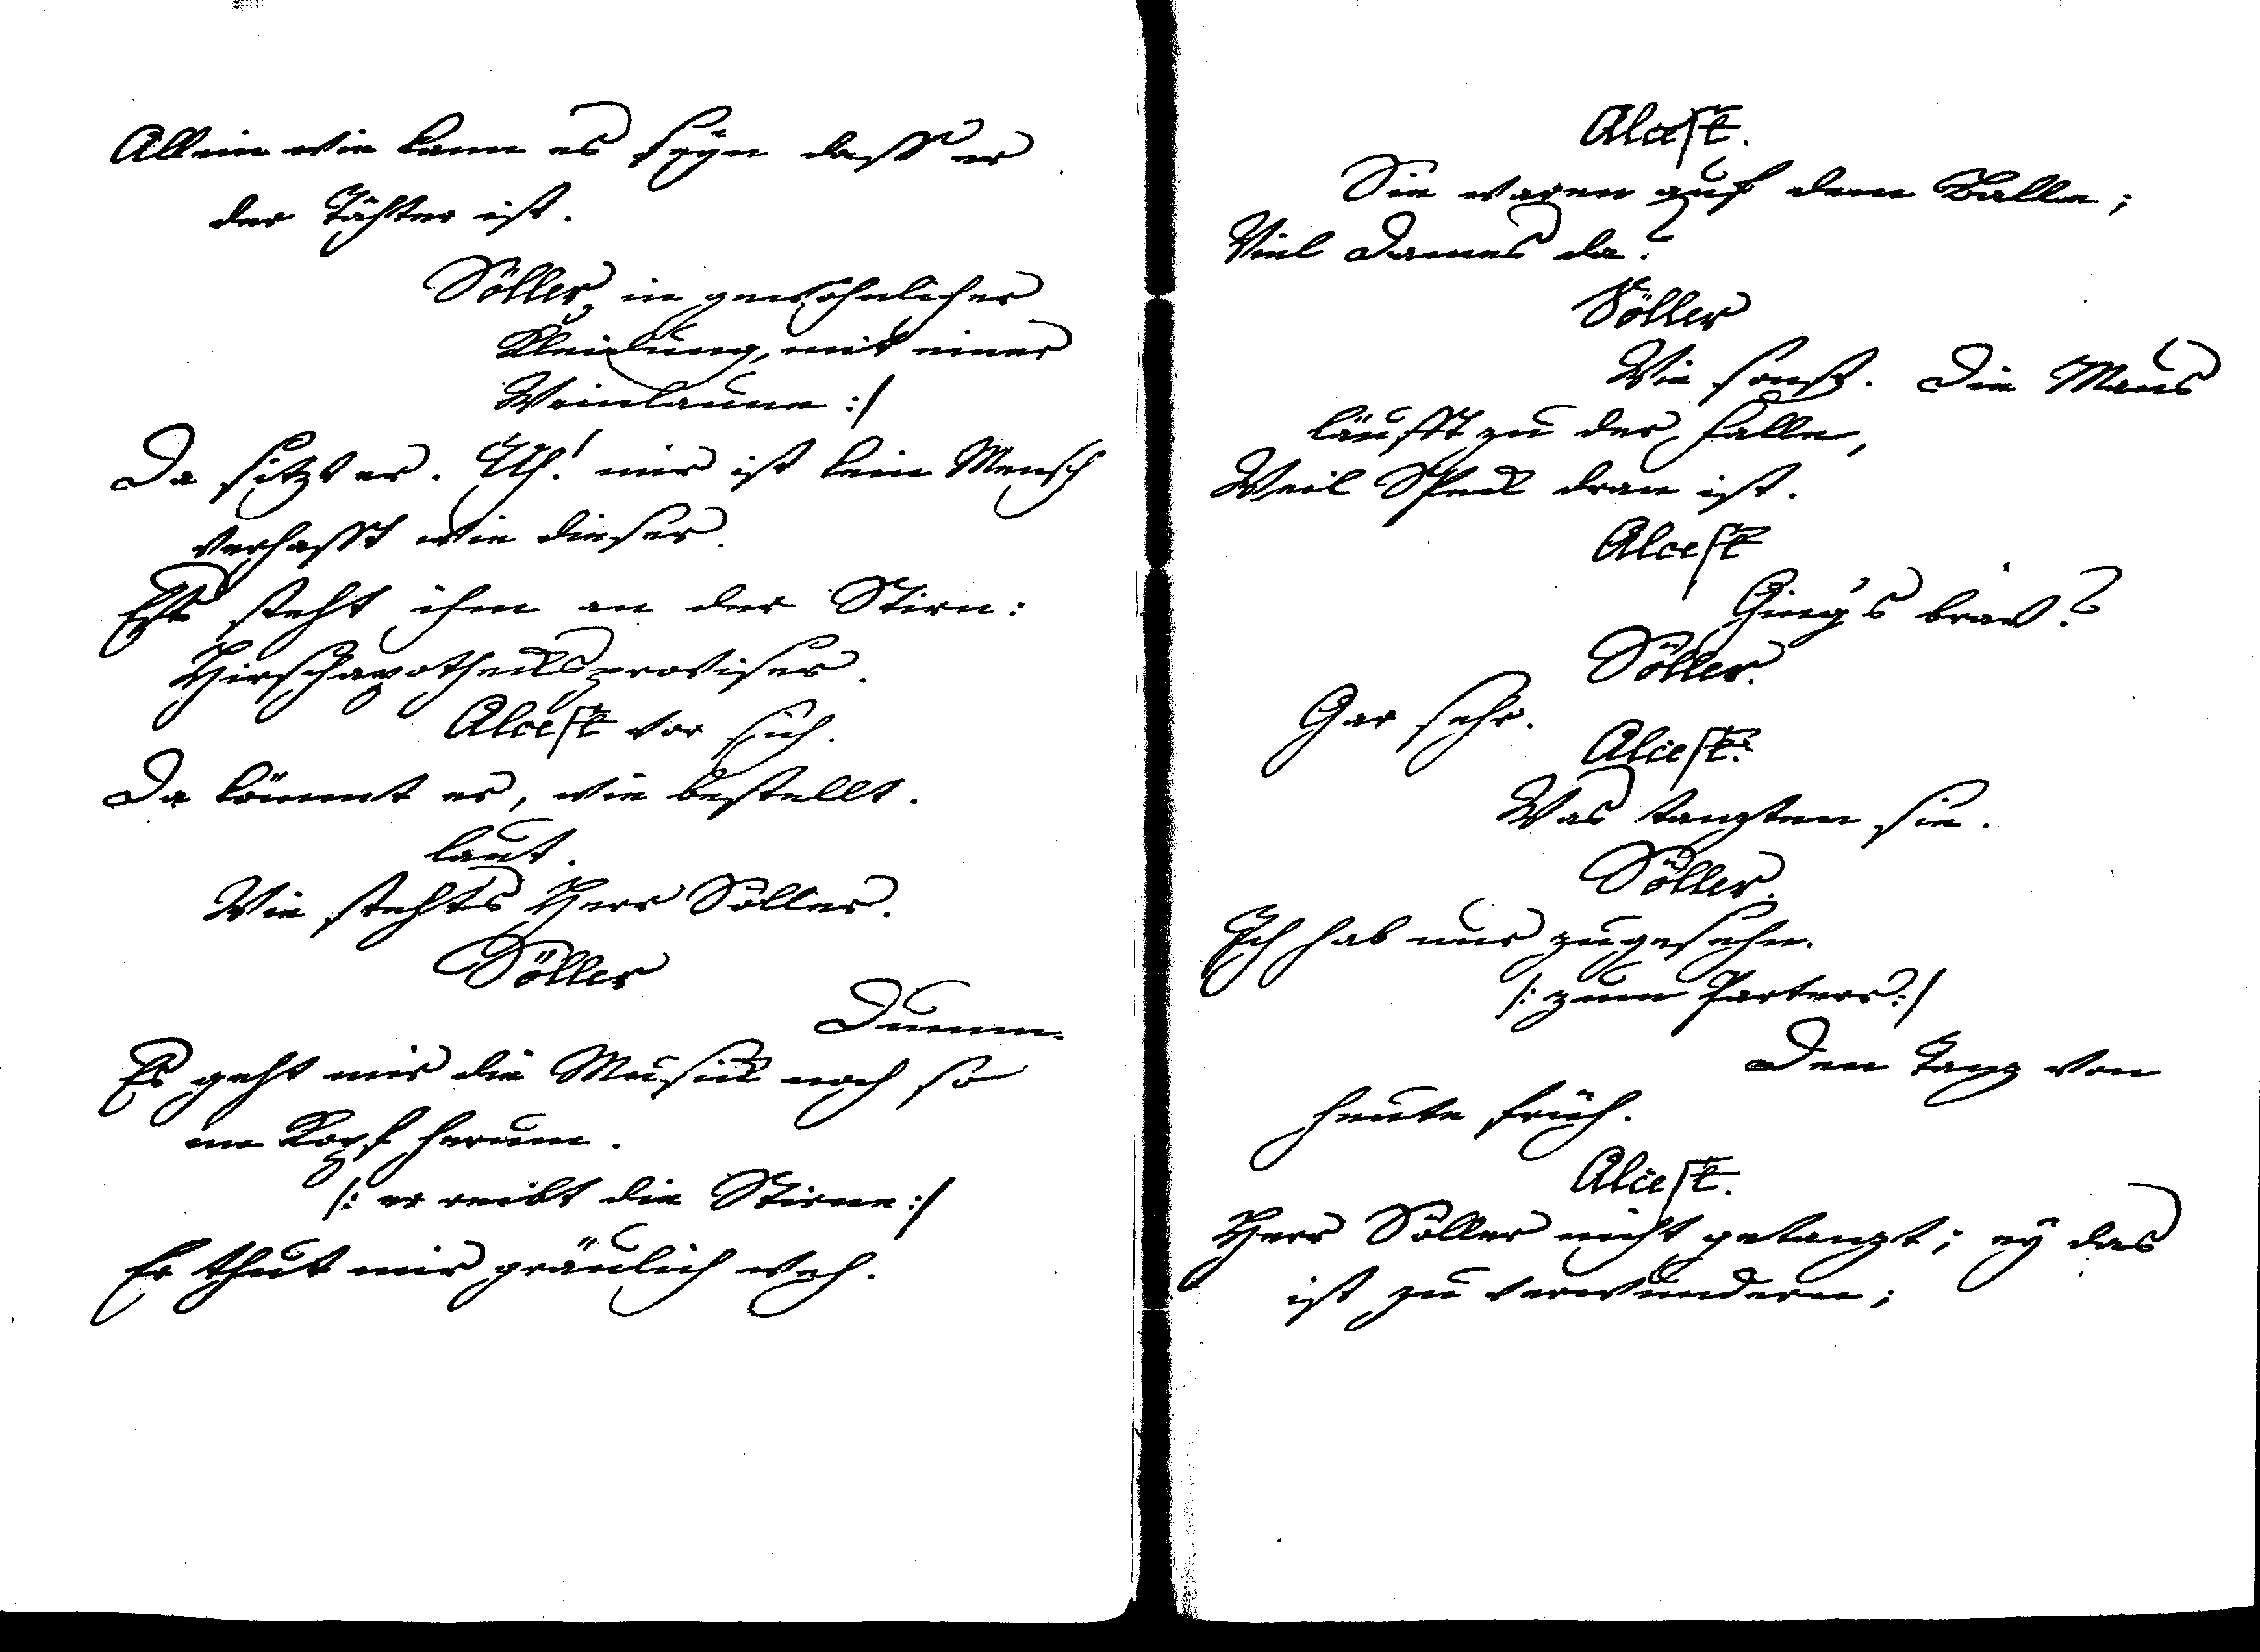 Allein wie kann es seyn dass er
der Tähter ist.
Söller, in gewöhnlicher
Kleidung, mit einer
Weinlaune :/
Da sitzt er. Uh! mir ist kein Mensch
verhasst wie dieser.
Es steht ihm an der Stirn:
Hirschapothecksproviser.
Alcest vor sich.
Da kömmt er, wie bestellt.
laut.
Wie stehts Herr Söller.
Söller
Dumm.
Es geht mir die Musick noch so
im Kopf herum.
/: er reibt die Stirne :/
Er thut mir gräulich weh.
Alcest.
Sie waren auf dem Balle;
Viel Dames da?
Söller
Wie sonst. Die Maus
läufft zu der Falle,
Weil Speck dran ist.
Alcest
Ging's brav?
Söller.
Gar sehr.
Alcest.
Was tanzten sie.
Söller.
Ich hab nur zugesehn.
/: zum Parterr :/
Den Tanz von
heute früh.
Alcest.
Herr Söller nicht getanzt; ey das
ist zu verwundern;